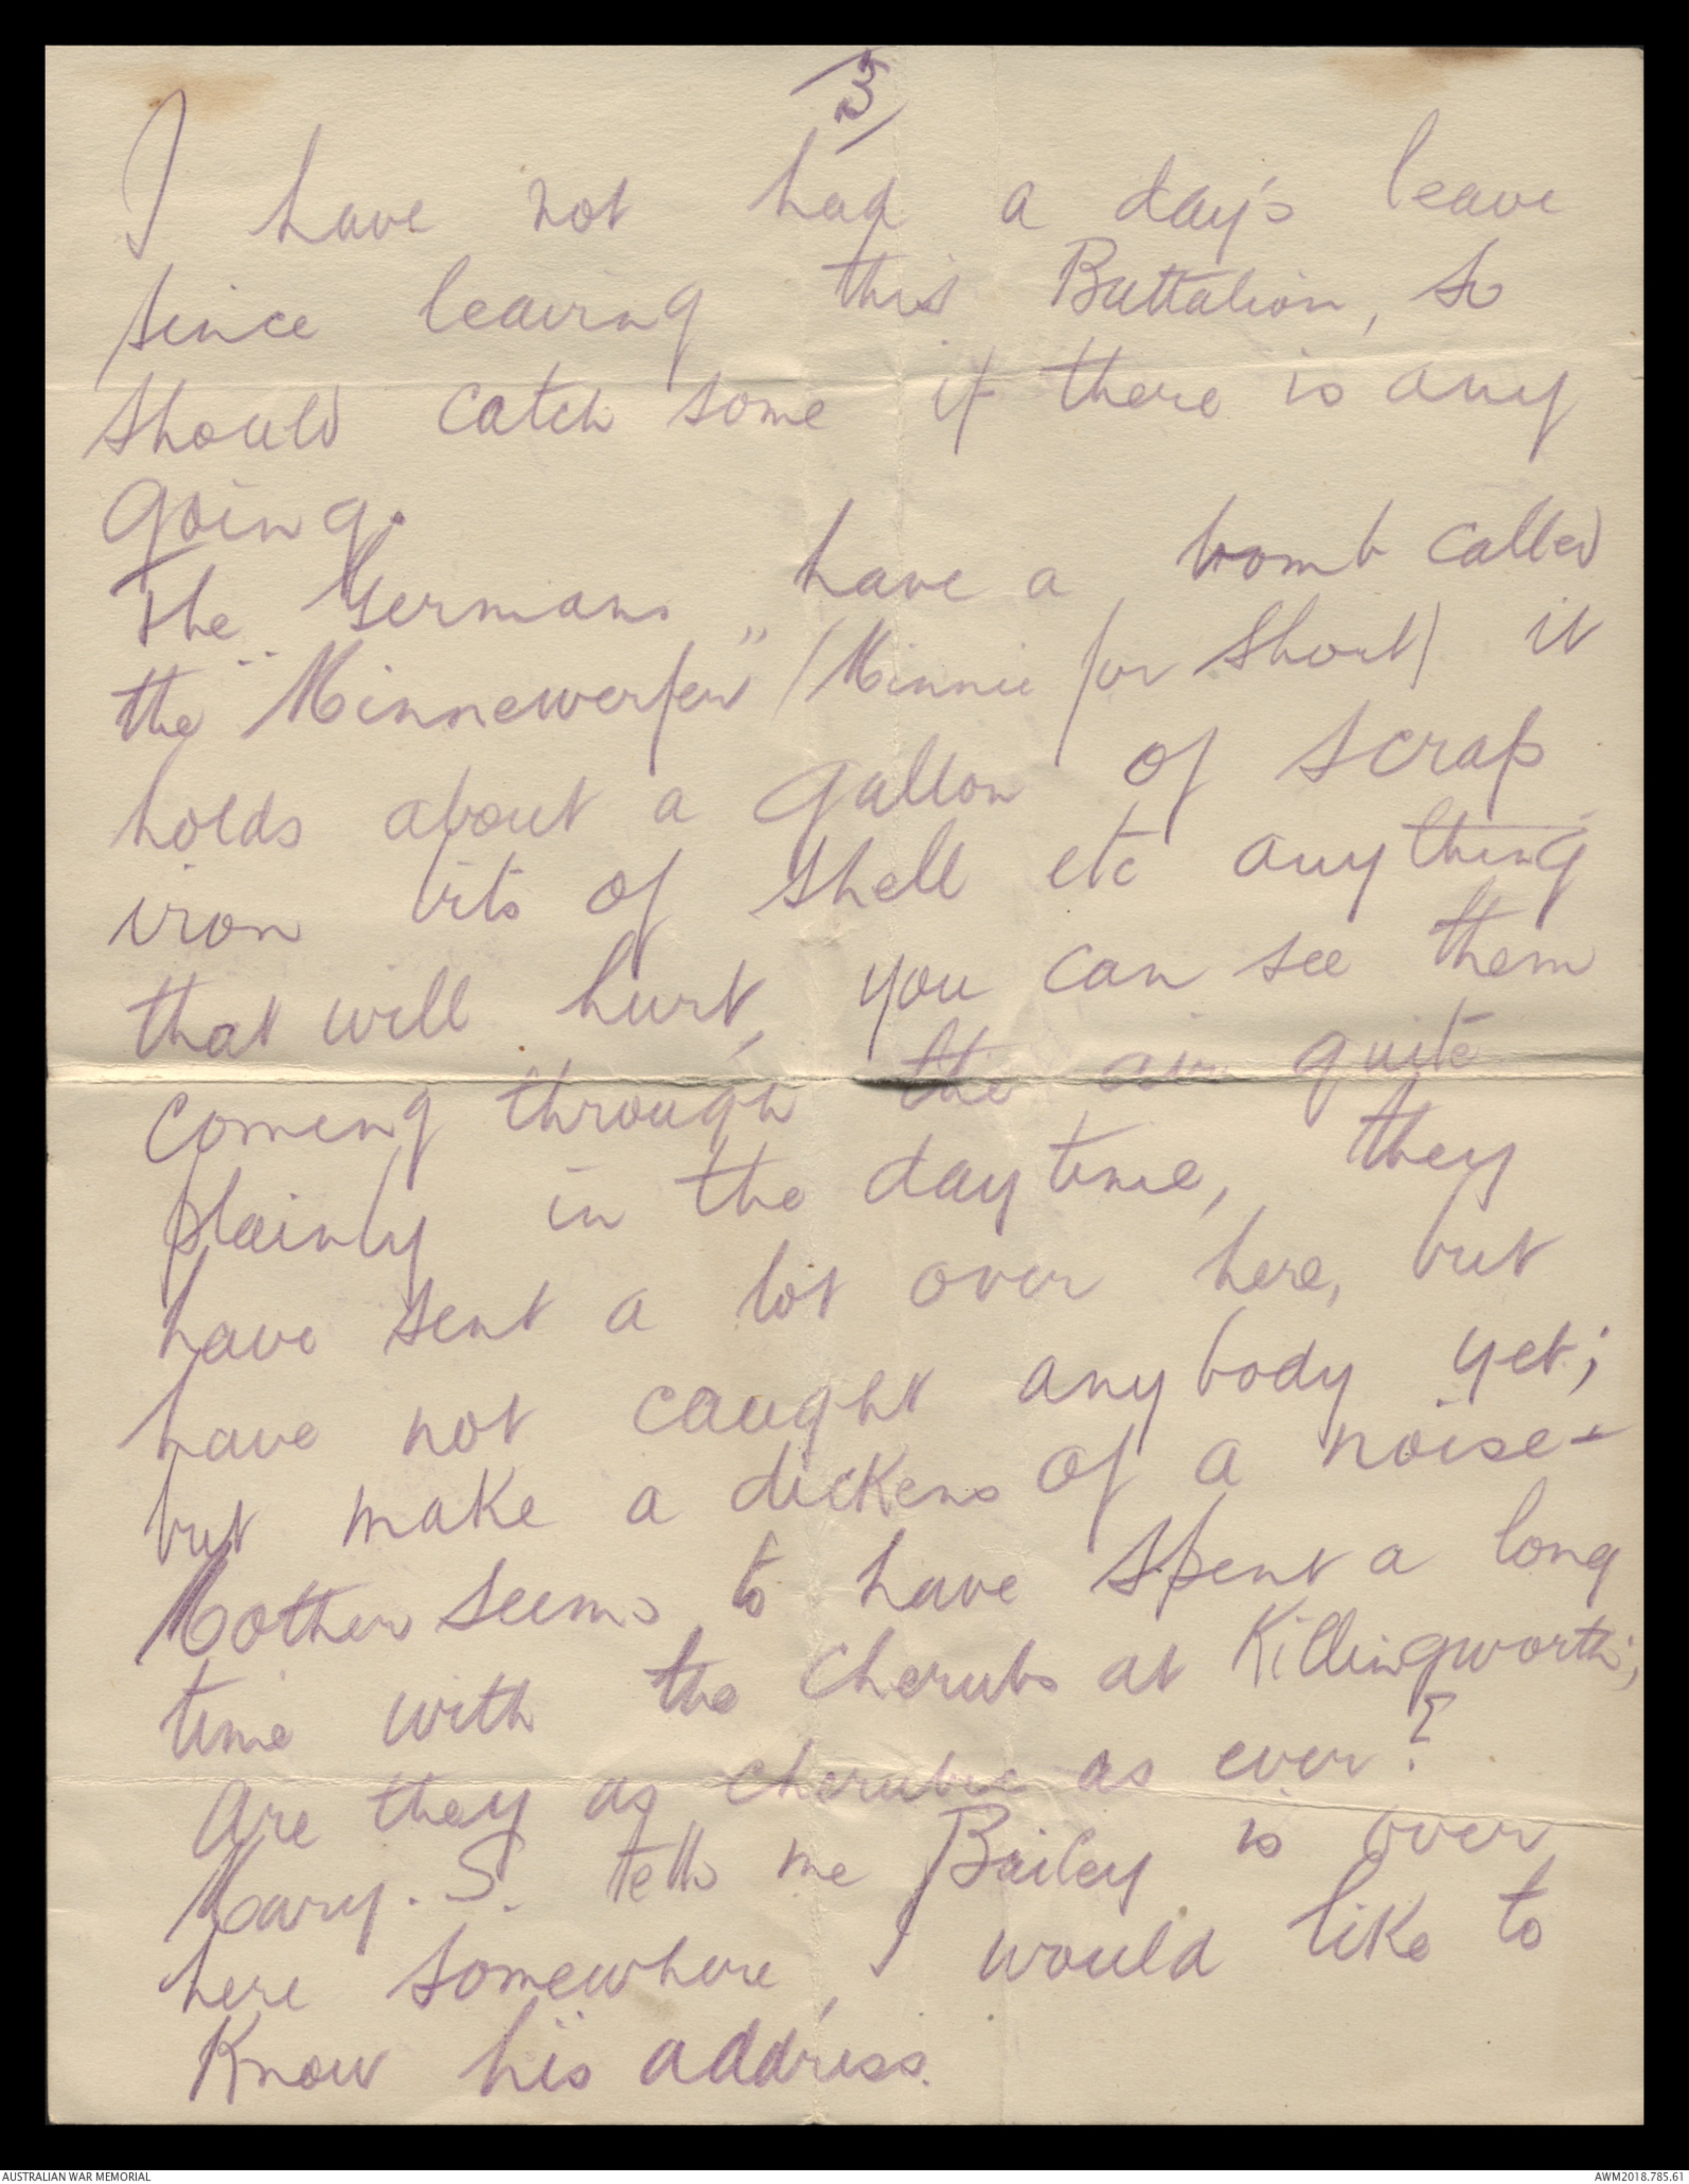 3
I have not had a day's leave
since leaving this Battalion, so
should catch some if there is any
going.
The Germans have a bomb called
the "Minnewerfer" (Minnie for short) it
holds about a gallon of scrap
iron bits of shell etc anything
that will hurt, you can see them
coming through the air quite
plainly in the daytime, they
have sent a lot over here, but
have not caught anybody yet;
but make a dickens of a noise -
Mother seems to have spent a long
time with the cherubs at Killingworth;
are they as cherubic as ever?
Mary. S. tells me Bailey is over
here somewhere, I would like to
know his address.
AUSTRALIAN WAR MEMORIAL
AWM2018.785.61